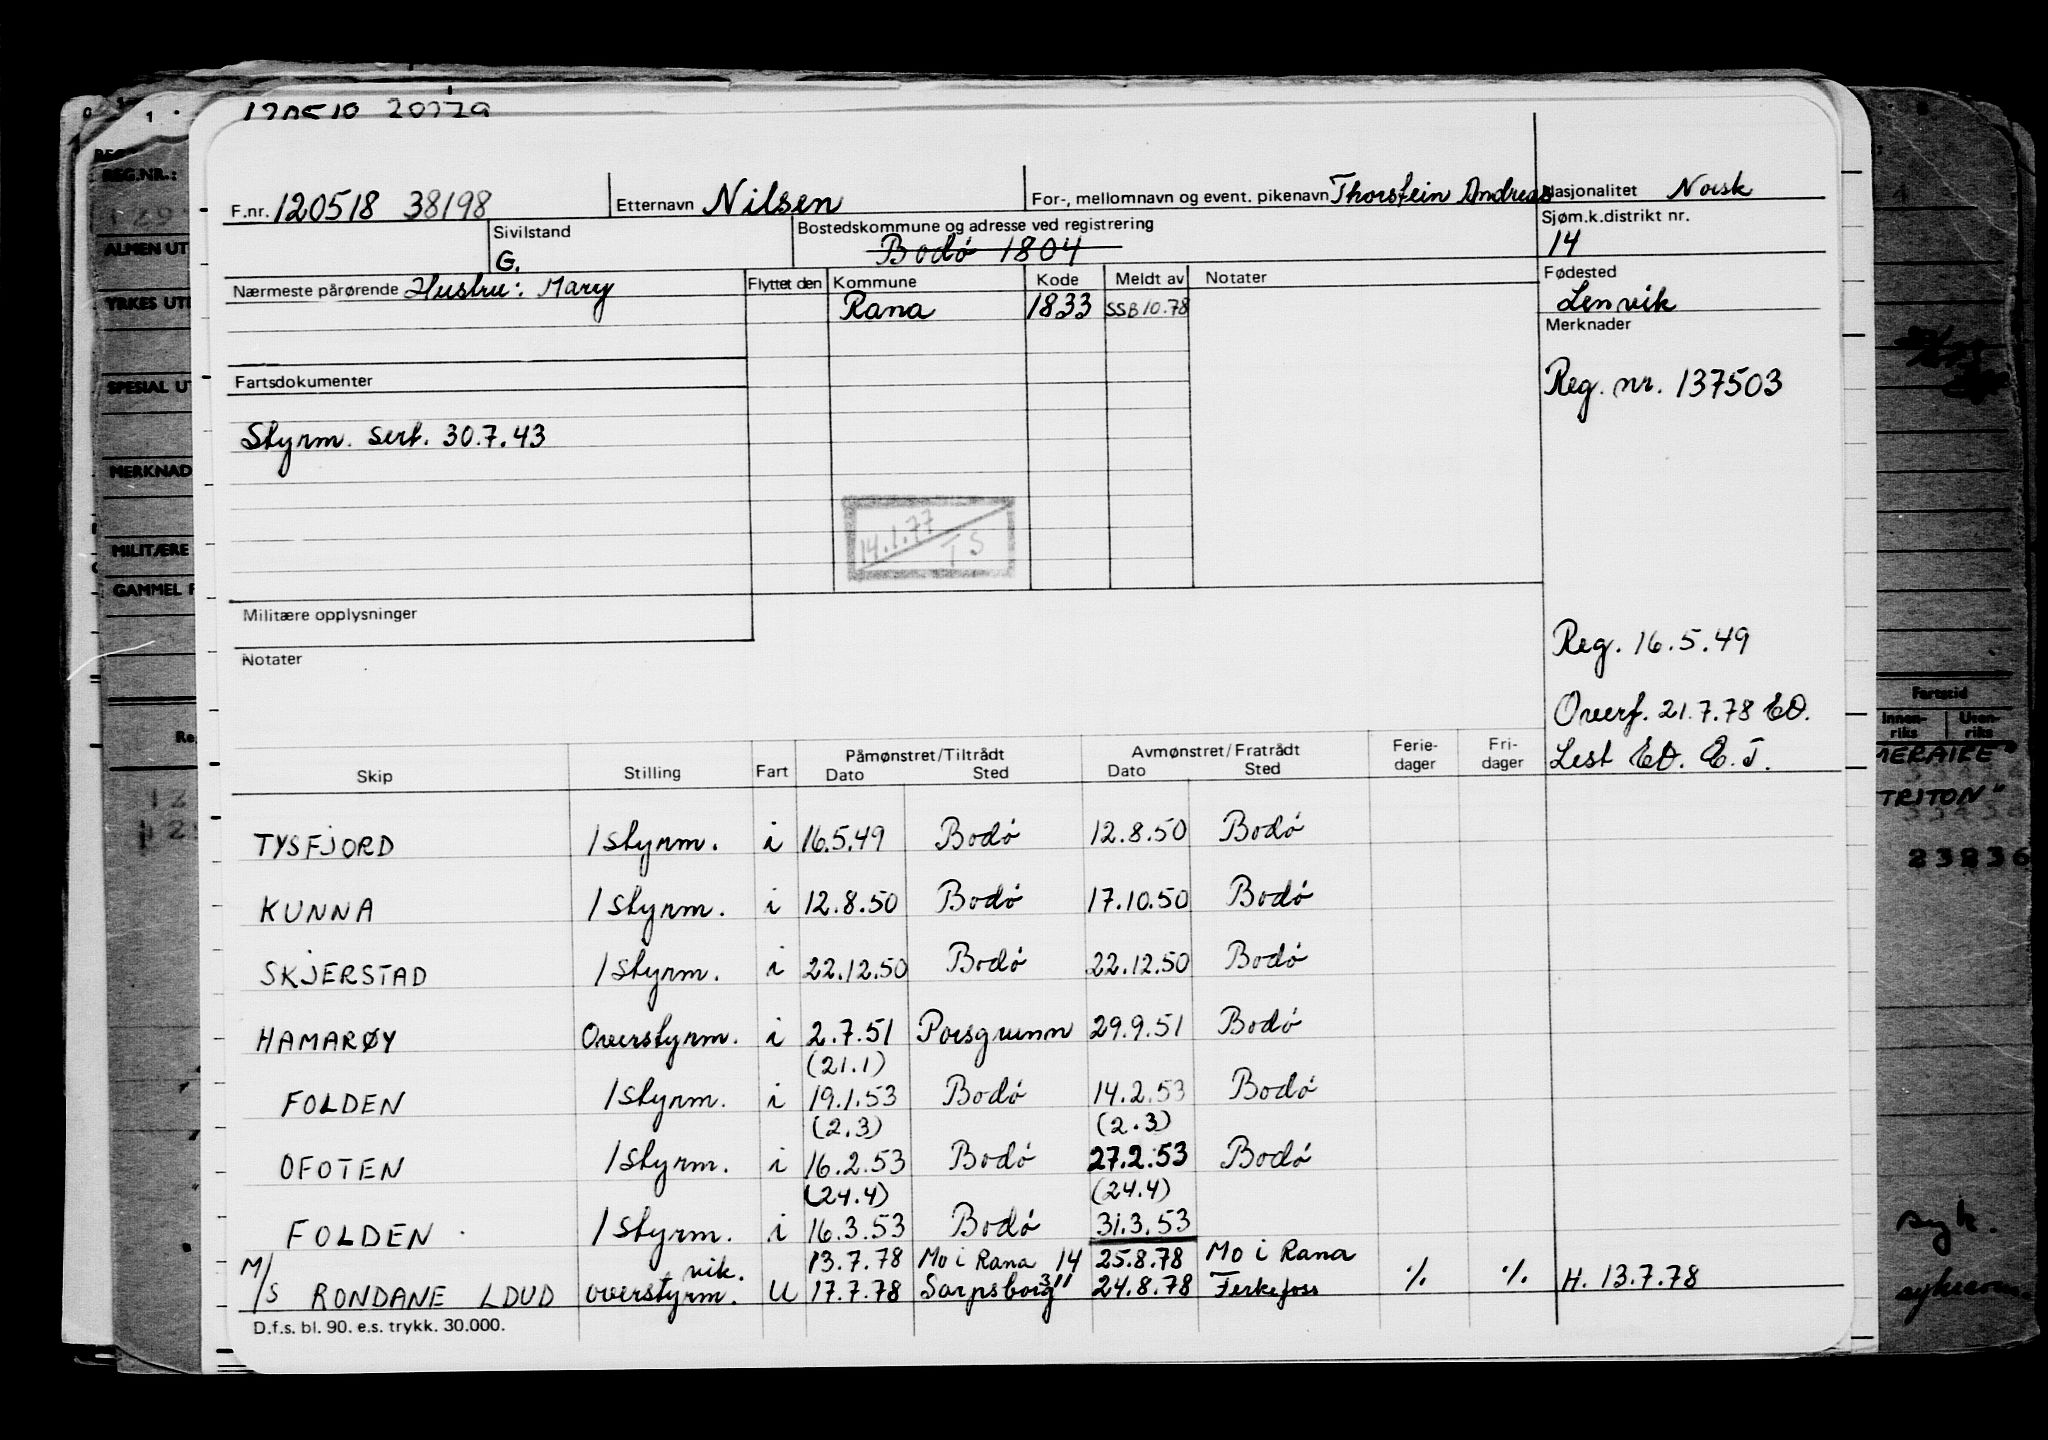 F.nr. 120518 38198 Etternavn Nilsen For-, mellomnavn og event. pikenavn Thorstein Andreas Nasjonalitet Norsk
Sivilstand G. Bostedskommune og adresse ved registrering Bodø 1804 Sjøm.k.distrikt nr. 14
Nærmeste pårørende Hustru: Mary Flyttet den Kommune Kode Meldt av Notater Fødested
Rana 1833 SSB 10.78 Lenvik
Merknader
Fartsdokumenter Reg. nr. 137503
Styrm. sert. 30.7.43
14.1.77
TS
Militære opplysninger
Notater
Reg. 16.5.49
Overf. 21.7.78 EO.
Lest EO. E.T.
Skip Stilling Fart Påmønstret/Tiltrådt Dato Sted Avmønstret/Fratrådt Dato Sted Ferie-dager Fri-dager
TYSFJORD 1 styrm. i 16.5.49 Bodø 12.8.50 Bodø
KUNNA 1 styrm. i 12.8.50 Bodø 17.10.50 Bodø
SKJERSTAD 1 styrm. i 22.12.50 Bodø 22.12.50 Bodø
HAMARØY Overstyrm. i 2.7.51 Porsgrunn 29.9.51 Bodø
(21.1)
FOLDEN 1 styrm. i 19.1.53 Bodø 14.2.53 Bodø
(2.3) (2.3)
OFOTEN 1 styrm. i 16.2.53 Bodø 27.2.53 Bodø
(24.4) (24.4)
FOLDEN 1 styrm. i 16.3.53 Bodø 31.3.53
vik. 13.7.78 Mo i Rana 14 25.8.78 Mo i Rana
M/S RONDANE LDUD overstyrm. U 17.7.78 Sarpsborg 24.8.78 % % H. 13.7.78
D.f.s. bl. 90. e.s. trykk. 30.000.
REG.NR.:
ALMEN UT
YRKES UT
SPESIAL UT
MERKNAD
MILITÆRE
GAMMEL F
Fartstid
Innen-riks Uten-riks
TRITON"
23236
syk.